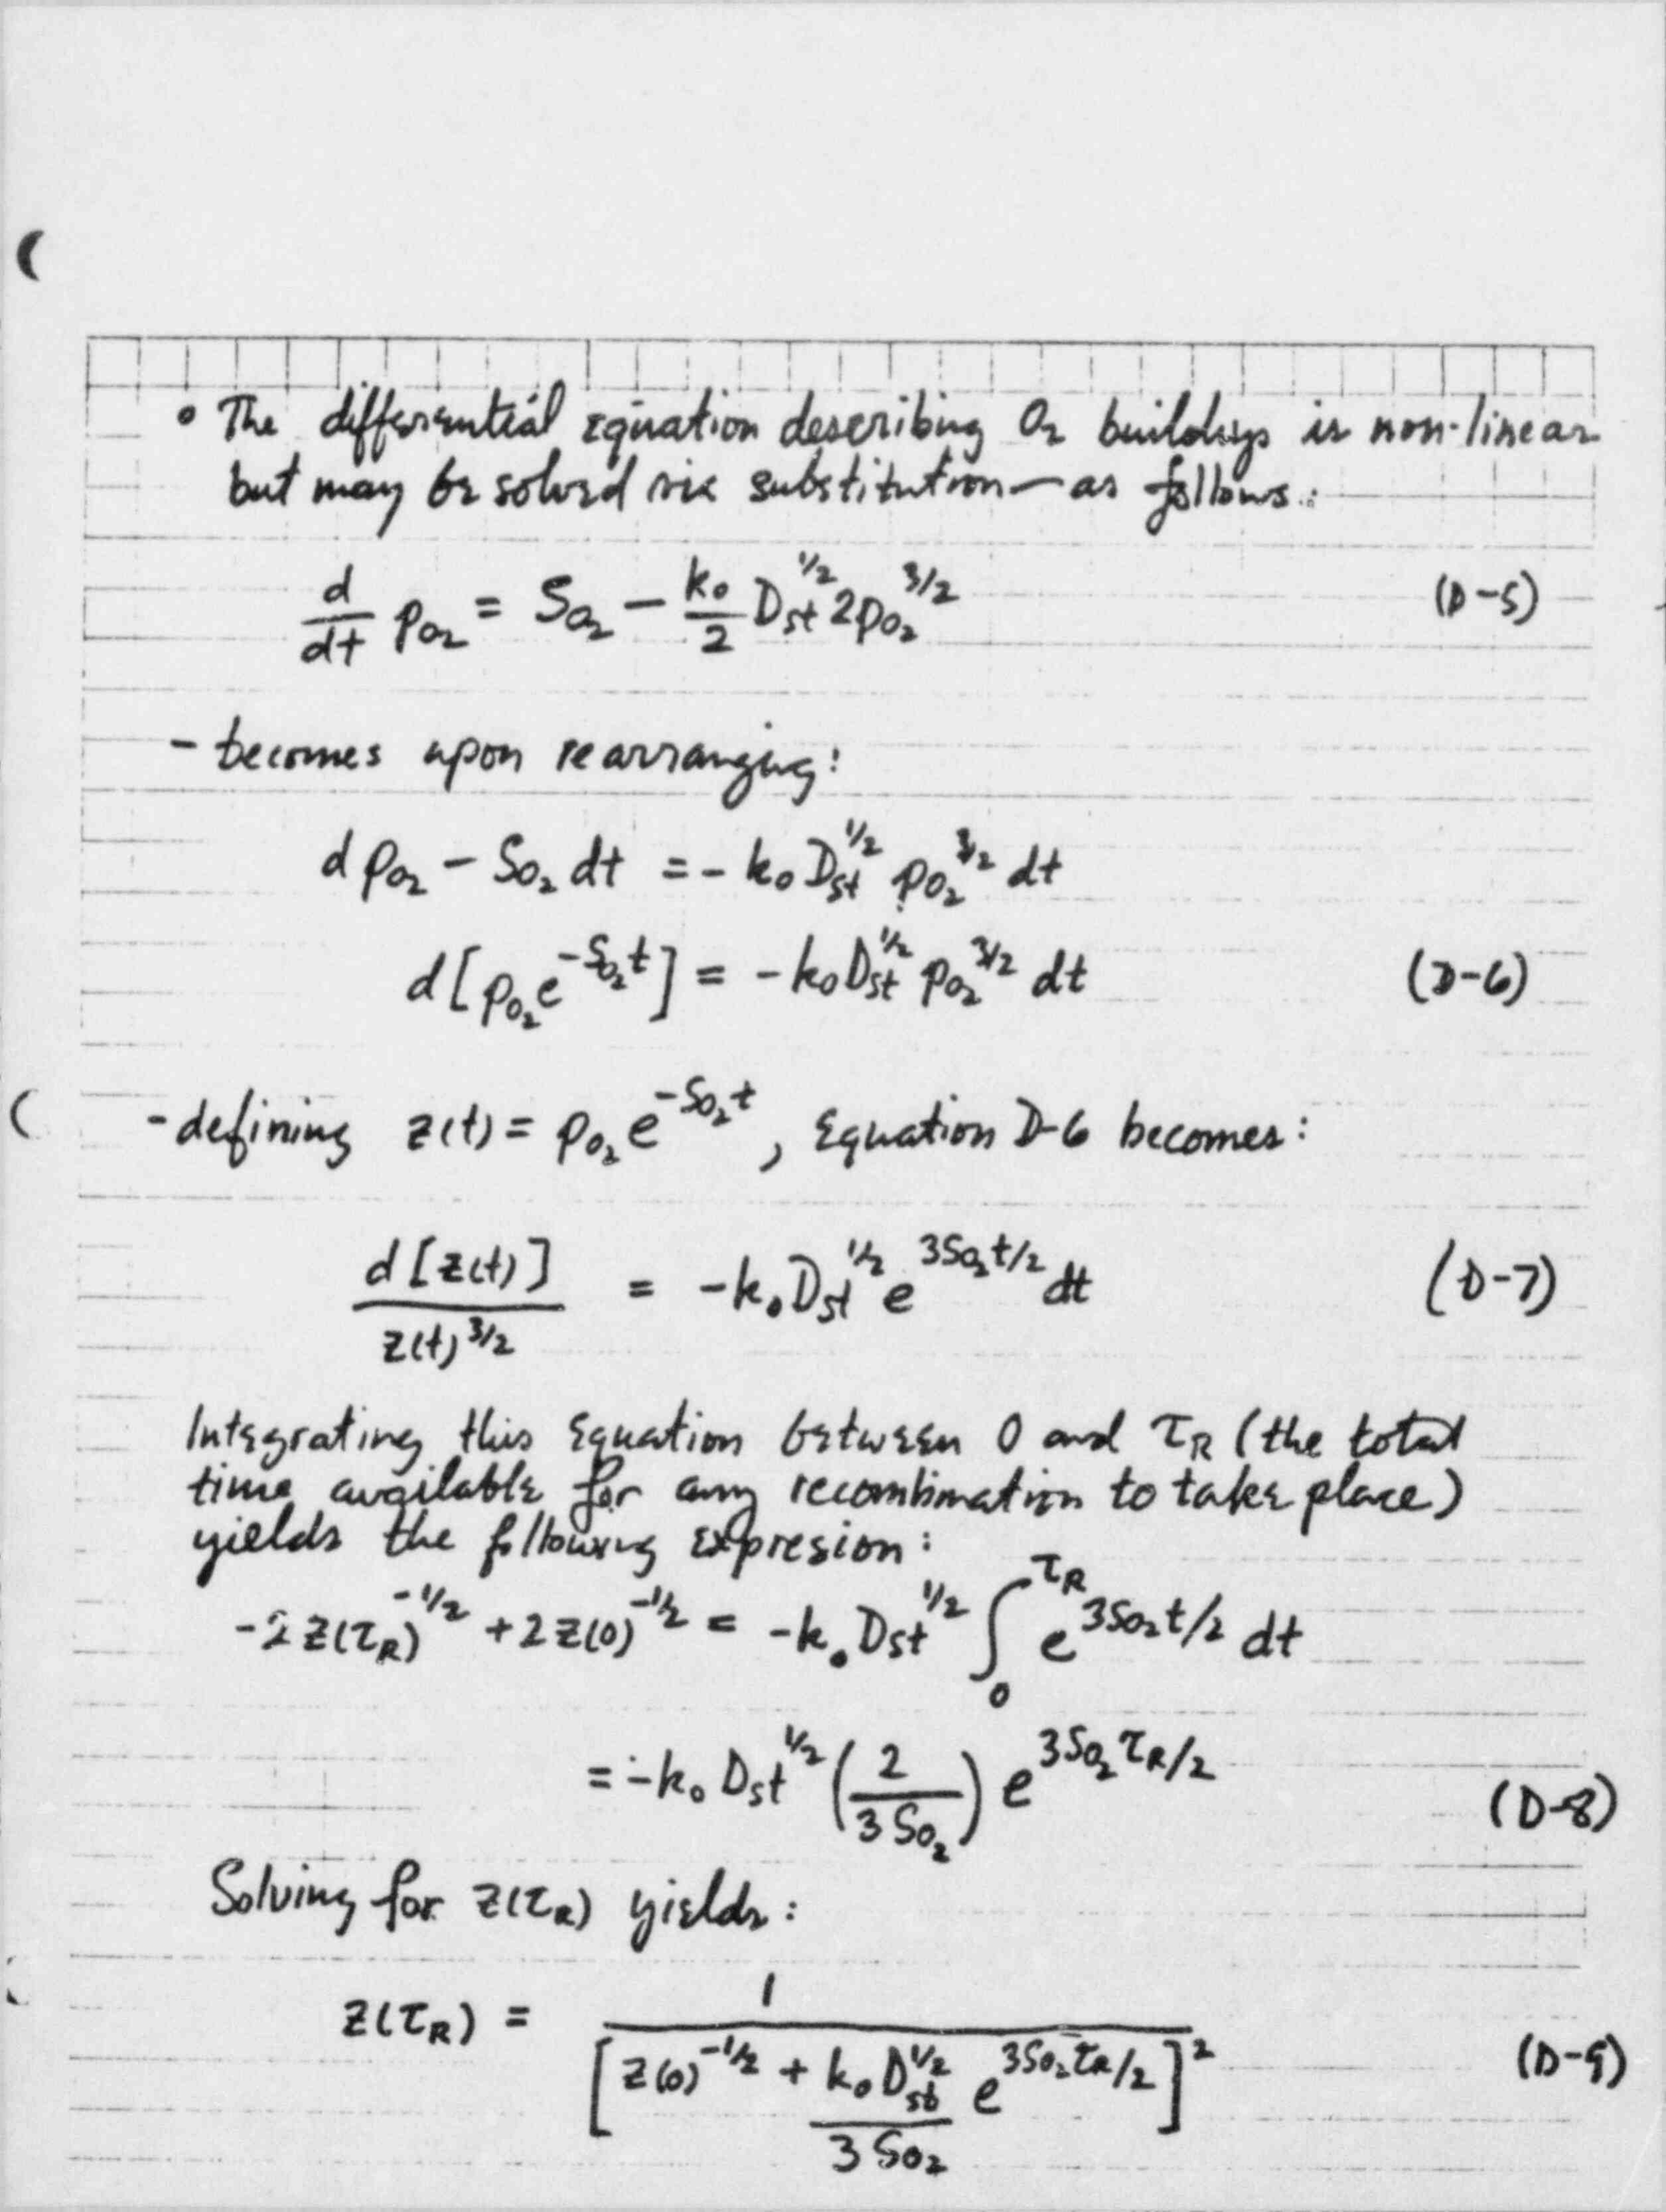 • The differential equation describing O₂ buildup is non-linear
but may be solved via substitution — as follows:
d/dt p_O₂ = S_O₂ − k₀/2 D_st^1/2 2p_O₂^3/2 (D-5)
- becomes upon rearranging:
d p_O₂ − S_O₂ dt = − k₀ D_st^1/2 p_O₂^3/2 dt
d[p_O₂ e^−S_O₂t] = −k₀ D_st^1/2 p_O₂^3/2 dt (D-6)
- defining z(t) = p_O₂ e^−S_O₂t, Equation D-6 becomes:
d[z(t)] / z(t)^3/2 = −k₀ D_st^1/2 e^3S_O₂t/2 dt (D-7)
Integrating this equation between 0 and τ_R (the total
time available for any recombination to take place)
yields the following expresion:
−2z(τ_R)^−1/2 + 2z(0)^−1/2 = −k₀ D_st^1/2 ∫₀^τ_R e^3S_O₂t/2 dt
= −k₀ D_st^1/2 (2/3S_O₂) e^3S_O₂τ_R/2 (D-8)
Solving for z(τ_R) yields:
z(τ_R) = 1 / [z(0)^−1/2 + k₀ D_st^1/2 / 3S_O₂ e^3S_O₂τ_R/2]² (D-9)